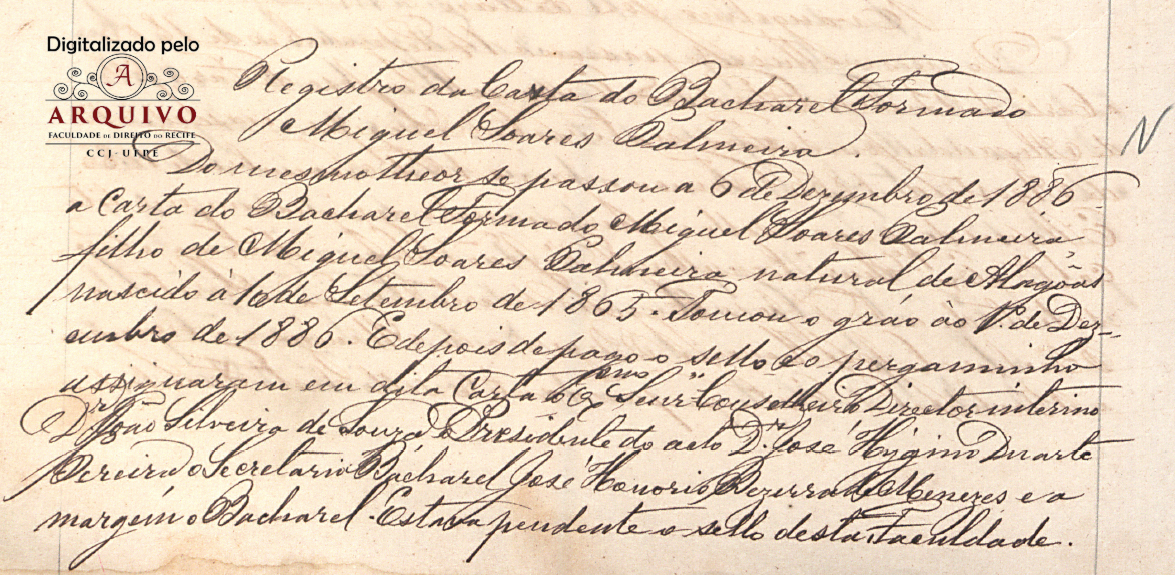 Digitalizado pelo
A
ARQUIVO
FACULDADE DE DIREITO DO RECIFE
CCJ-UFPE
Registro da Carta do Bacharel Formado
Miguel Soares Palmeira.
N
Do mesmo theor se passou a 6 de Dezembro de 1886
a Carta do Bacharel Formado Miguel Soares Palmeira
filho de Miguel Soares Palmeira natural de Alagôas
nascido á 16 de Setembro de 1865. Tomou o gráo áo 1º de Dez-
embro de 1886. E depois de pago o sello e o pergaminho
assignaram em dita Carta o Exmo Senr Conselheiro Director interino
Dr. João Silveira de Souza o Presidente do acto Dr. José Hygino Duarte
Pereira o Secretario Bacharel José Honorio Bezerra de Menezes e a
margem o Bacharel. Estava pendente o sello desta Faculdade.